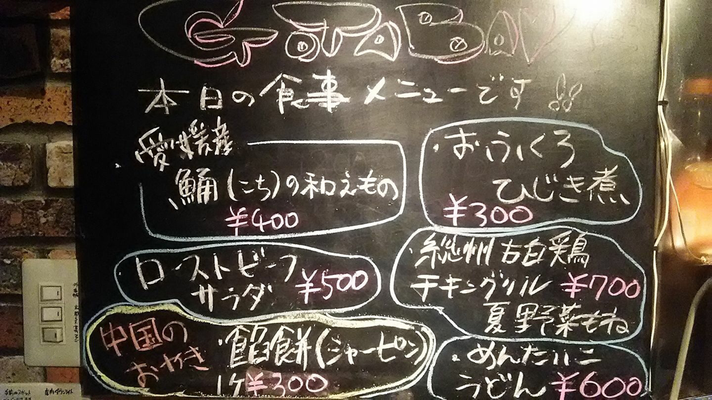 本日の食事メニューです
愛媛産
鯒(こち)の和えもの
¥400
・おふくろ
ひじき煮
¥300
ローストビーフ
サラダ ¥500
総州古白鶏
チキングリル ¥700
夏野菜もね
中国の
おやき
・餡餅(シャーピン)
1ケ¥300
・めんたいこ
うどん ¥600